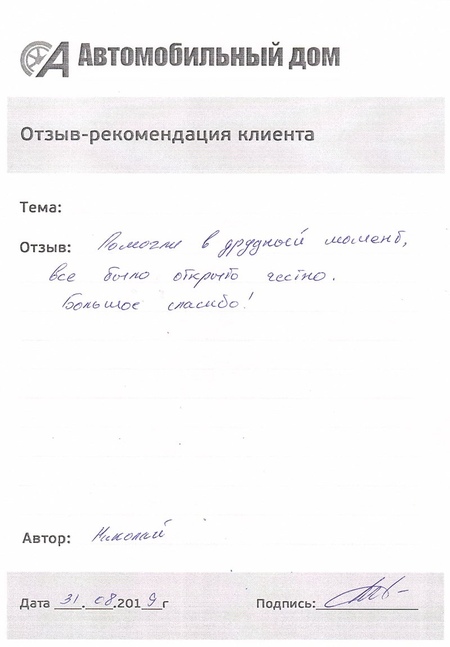 Автомобильный дом
Отзыв-рекомендация клиента
Тема:
Отзыв: Помогли в трудный момент,
все было открыто честно.
Большое спасибо!
Автор: Николай
Дата 31.08.2019г Подпись: